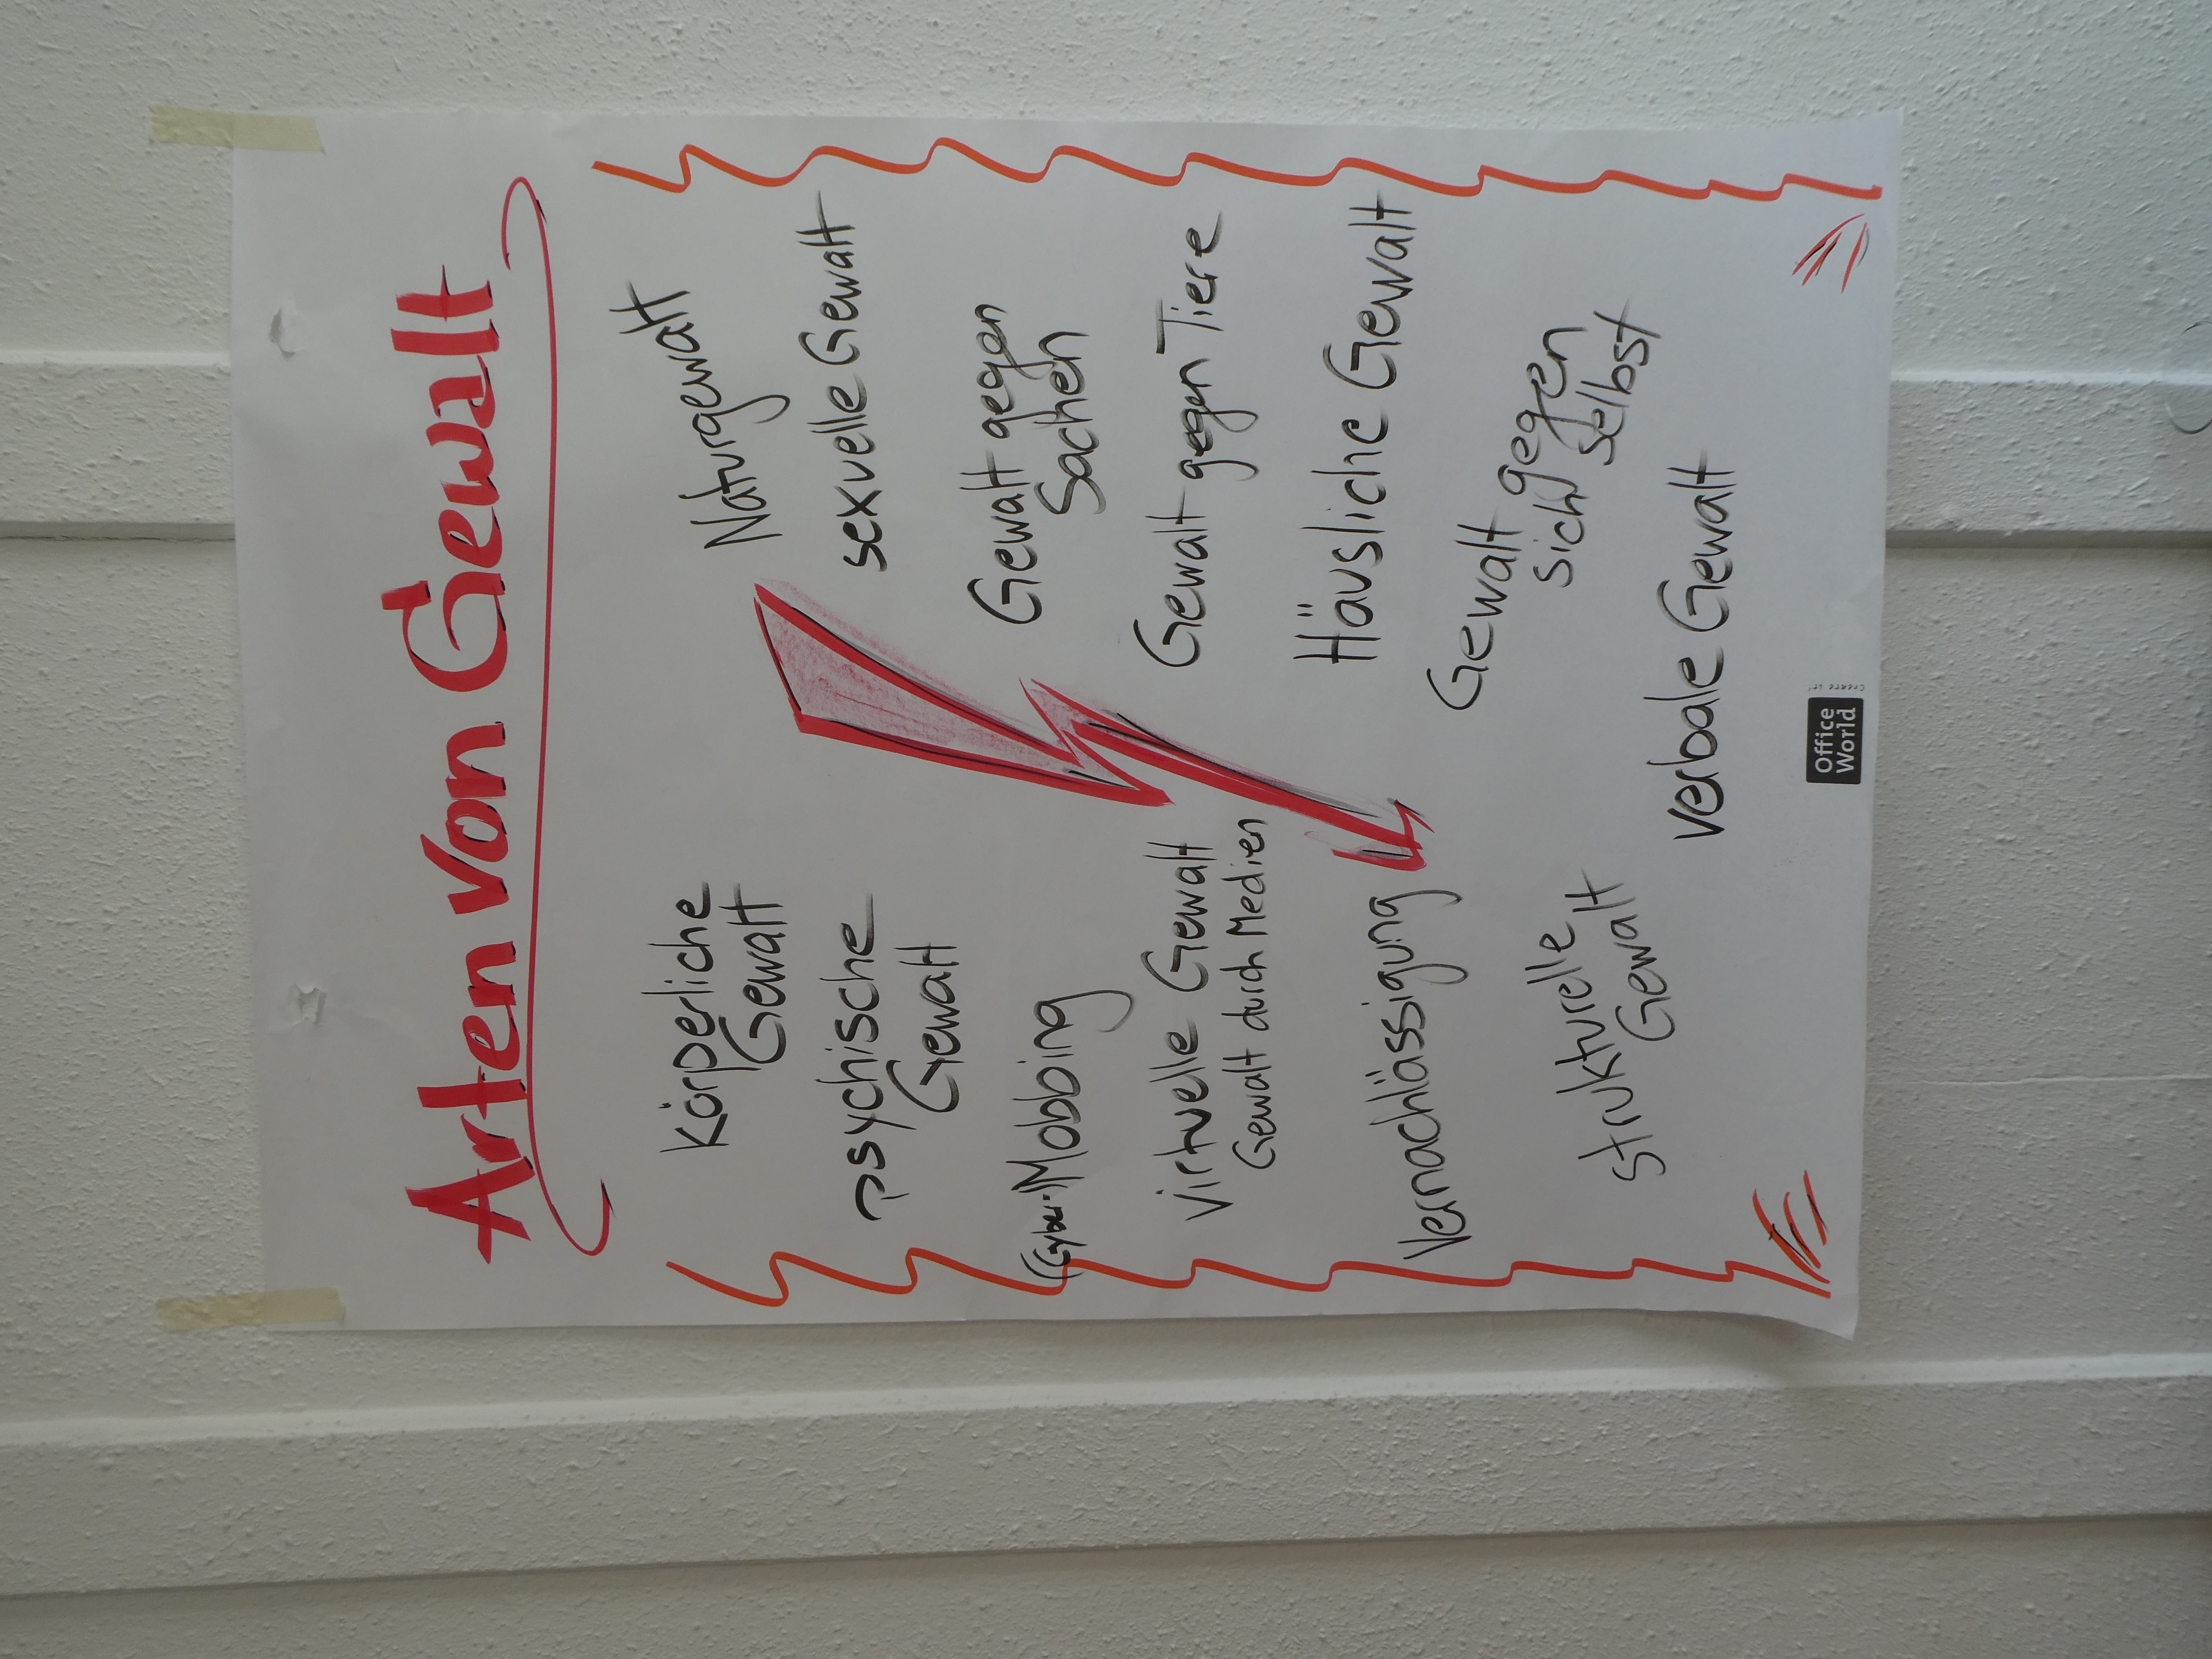 Arten von Gewalt
Körperliche
Gewalt
psychische
Gewalt
(Cyber-)Mobbing
Virtuelle Gewalt
Gewalt durch Medien
Vernachlässigung
strukturelle
Gewalt
Naturgewalt
sexuelle Gewalt
Gewalt gegen
Sachen
Gewalt gegen Tiere
Häusliche Gewalt
Gewalt gegen
sich selbst
verbale Gewalt
Office
World
Create it!